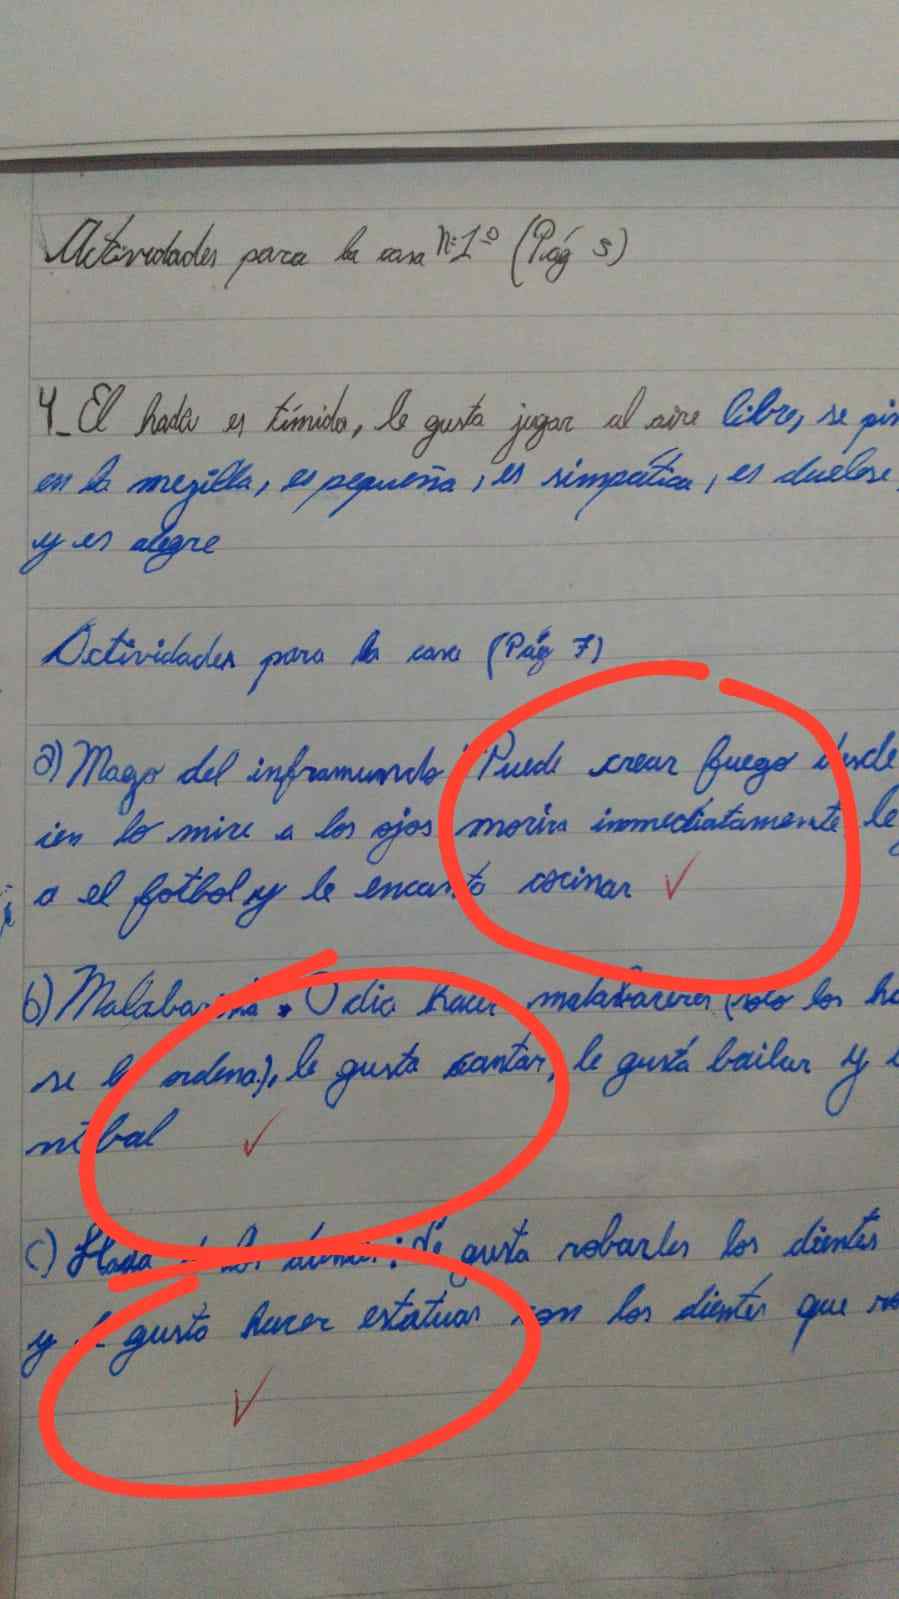 Actividades para la casa N:1º (Pág 5)
4_ El hada es tímida, le gusta jugar al aire libre, se pin
en la mezilla, es pequeña, es simpática, es
y es alegre
Actividades para la casa (Pág 7)
a) Mago del inframundo: Puede crear fuego desde
ien lo mire a los ojos morira inmediatamente le
a el fotbol y le encanta cocinar
b) Odia hacer malabareres (solo los ha
se lo ordena), le gusta cantar, le gusta bailar y
nibal
c) Hada de los dientes: le gusta robarles los dientes
y le gusta hacer estatuas con los dientes que ro